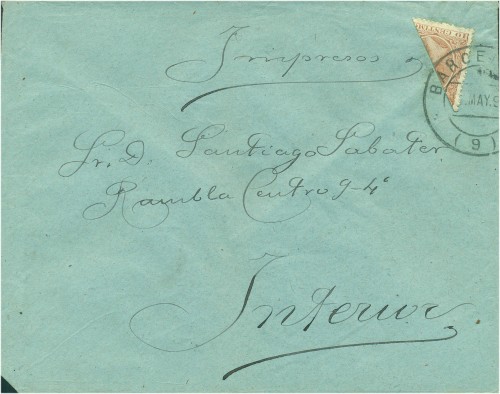 Impresos
10 CENTIMO
BARCE
MAY.9
(9)
Sr. D. Santiago Sabater
Rambla Centro, 9-4º
Interior